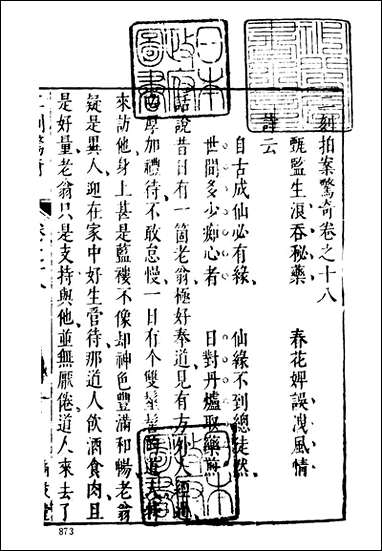 二刻拍案驚奇卷之十八
甄監生浪吞秘藥　春花婢誤洩風情
詩云
自古成仙必有緣　仙緣不到總徒然
世間多少痴心者　日對丹爐取藥煎
話說昔日有一箇老翁極好奉道見有方外人經過
厚加禮待不敢怠慢一日有个雙髻髽的道人特
來訪他身上甚是藍褸不像却神色豐滿和暢老翁
疑是異人迎在家中好生管待那道人飲酒食肉且
是好量老翁只是支持與他並無厭倦道人來去了
873
日本政府圖書